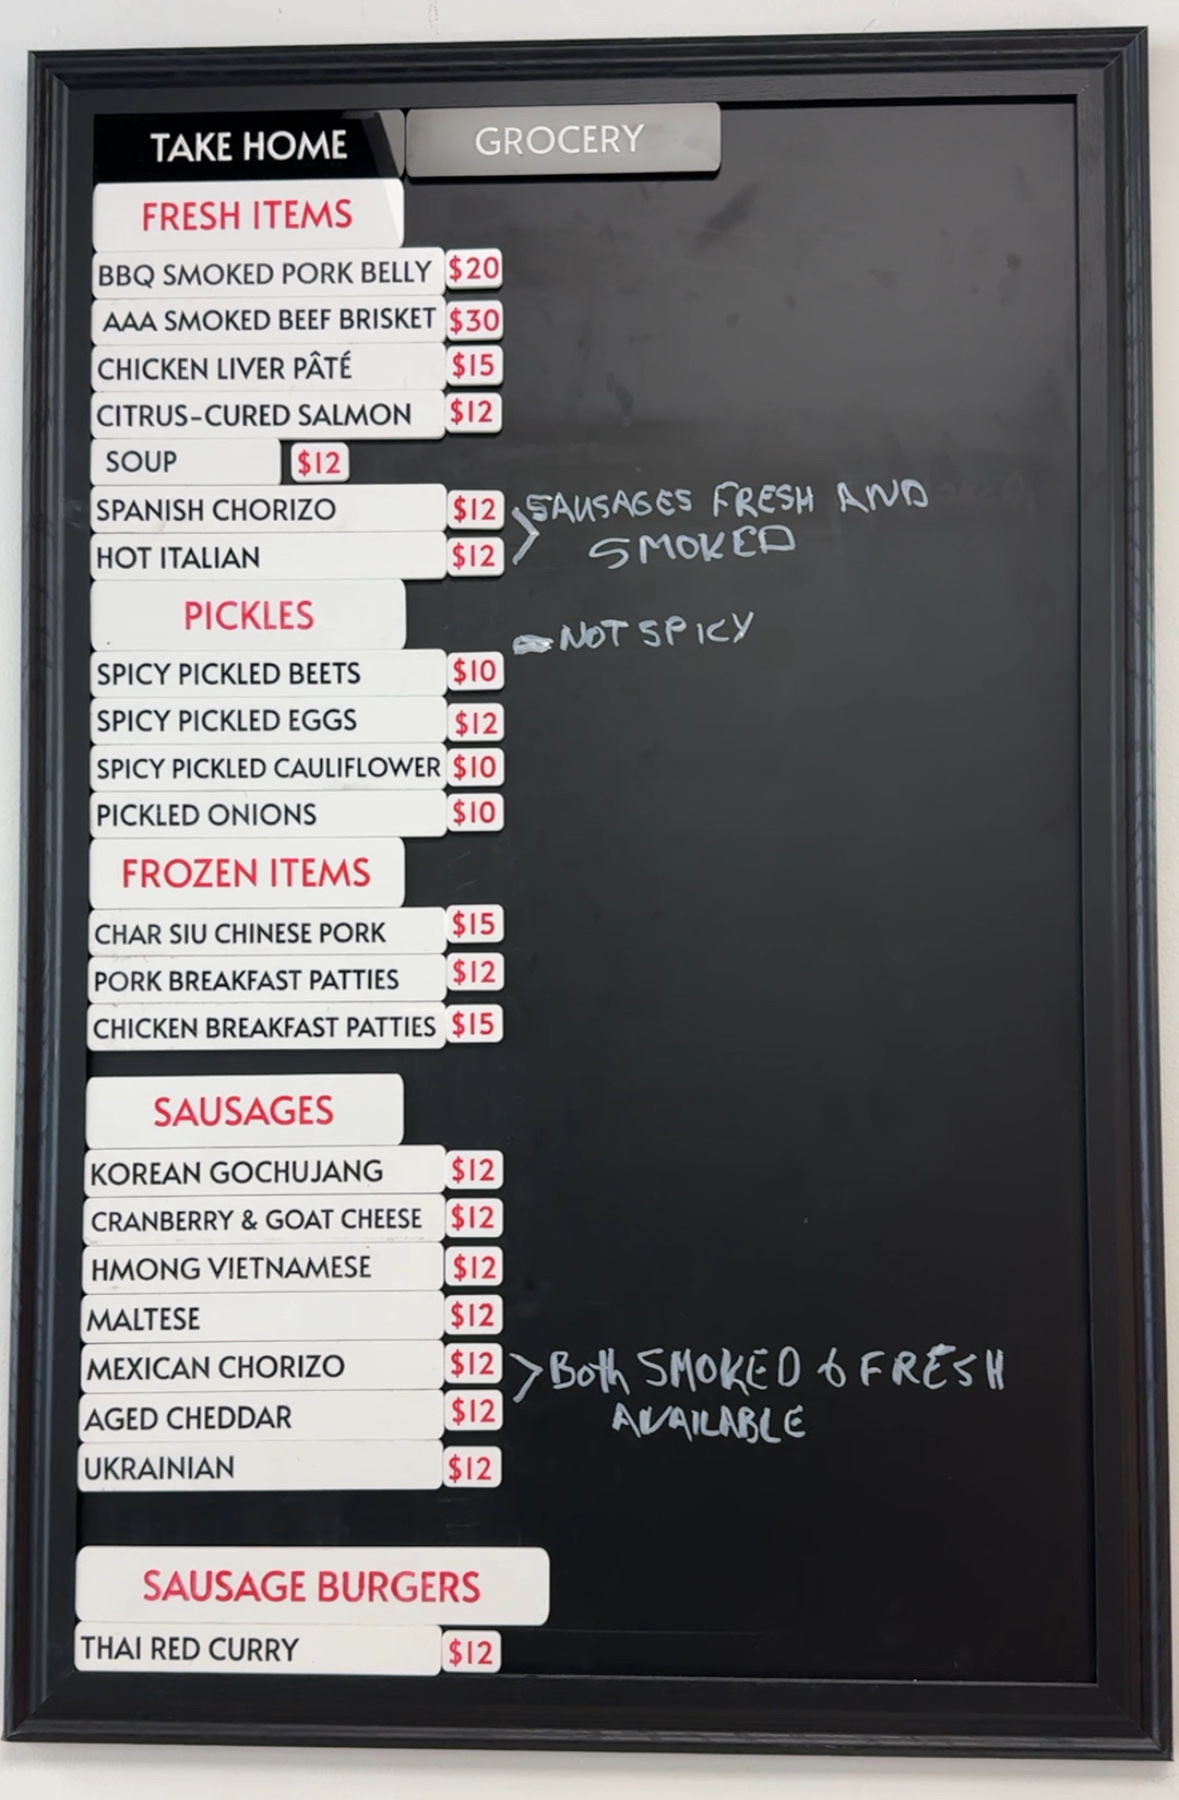 TAKE HOME GROCERY
FRESH ITEMS
BBQ SMOKED PORK BELLY $20
AAA SMOKED BEEF BRISKET $30
CHICKEN LIVER PÂTÉ $15
CITRUS-CURED SALMON $12
SOUP $12
SPANISH CHORIZO $12 > SAUSAGES FRESH AND
HOT ITALIAN $12 SMOKED
PICKLES
- NOT SPICY
SPICY PICKLED BEETS $10
SPICY PICKLED EGGS $12
SPICY PICKLED CAULIFLOWER $10
PICKLED ONIONS $10
FROZEN ITEMS
CHAR SIU CHINESE PORK $15
PORK BREAKFAST PATTIES $12
CHICKEN BREAKFAST PATTIES $15
SAUSAGES
KOREAN GOCHUJANG $12
CRANBERRY & GOAT CHEESE $12
HMONG VIETNAMESE $12
MALTESE $12
MEXICAN CHORIZO $12 > Both SMOKED & FRESH
AGED CHEDDAR $12 AVAILABLE
UKRAINIAN $12
SAUSAGE BURGERS
THAI RED CURRY $12